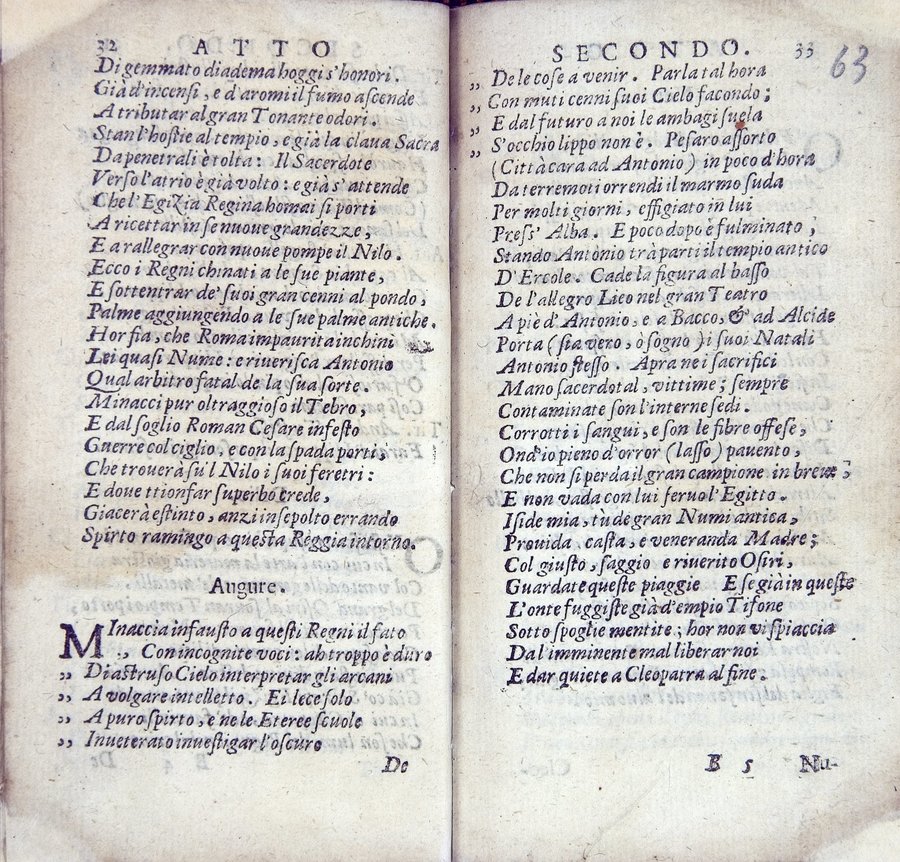 32 ATTO
Di gemmato diadema hoggi s'honori.
Già d'incensi, e d'aromi il fumo ascende
A tributar al gran Tonante odori.
Stan l'hostie al tempio, e già la claua Sacra
Da penetrali è tolta: Il Sacerdote
Verso l'atrio è già volto: e già s'attende
Che l'Egizia Regina homai si porti
A ricettar in se nuoue grandezze,
E a rallegrar con nuoue pompe il Nilo.
Ecco i Regni chinati a le sue piante,
E sottentrar de' suoi gran cenni al pondo,
Palme aggiungendo a le sue palme antiche.
Hor fia, che Roma impaurita inchini
Lei quasi Nume: e riuerisca Antonio
Qual arbitro fatal de la sua sorte.
Minacci pur oltraggioso il Tebro,
E dal soglio Roman Cesare infesto
Guerre col ciglio, e con la spada porti,
Che trouerà sù'l Nilo i suoi feretri:
E doue ttionfar superbo crede,
Giacerà estinto, anzi insepolto errando
Spirto ramingo a questa Reggia intorno.
Augure.
MInaccia infausto a questi Regni il fato
,, Con incognite voci: ah troppo è duro
,, Di astruso Cielo interpretar gli arcani
,, A volgare intelletto. Ei lece solo
,, A puro spirto, e ne le Eteree scuole
,, Inueterato inuestigar l'oscuro
De
SECONDO. 33
63
,, De le cose a venir. Parla tal hora
,, Con muti cenni suoi Cielo facondo;
,, E dal futuro a noi le ambagi suela
,, S'occhio lippo non è. Pesaro assorto
(Città cara ad Antonio) in poco d'hora
Da terremoti orrendi il marmo suda
Per molti giorni, effigiato in lui
Press' Alba. E poco dopo è fulminato,
Stando Antonio trà parti il tempio antico
D'Ercole. Cade la figura al basso
De l'allegro Lieo nel gran Teatro
A piè d'Antonio, e a Bacco, & ad Alcide
Porta (sia vero, ò sogno) i suoi Natali
Antonio stesso. Apra ne i sacrifici
Mano sacerdotal, vittime; sempre
Contaminate son l'interne sedi.
Corrotti i sangui, e son le fibre offese,
Ond'io pieno d'orror (lasso) pauento,
Che non si perda il gran campione in breue,
E non vada con lui seruo l'Egitto.
Iside mia, tù de gran Numi antica,
Prouida, casta, e veneranda Madre;
Col giusto, saggio e riuerito Osiri,
Guardate queste piaggie E se già in queste
L'onte fuggiste già d'empio Tifone
Sotto spoglie mentite; hor non vi spiaccia
Dal'imminente mal liberar noi
E dar quiete a Cleopatra al fine.
B 5 Nu-